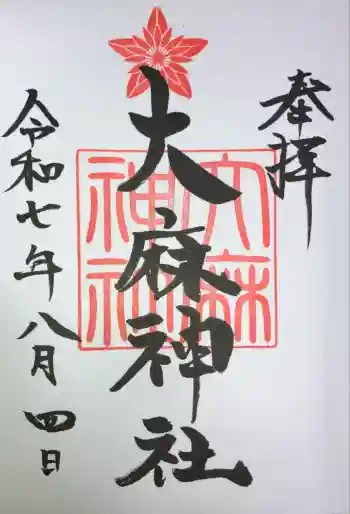 奉拝
大麻神社
大麻神社
令和七年八月四日